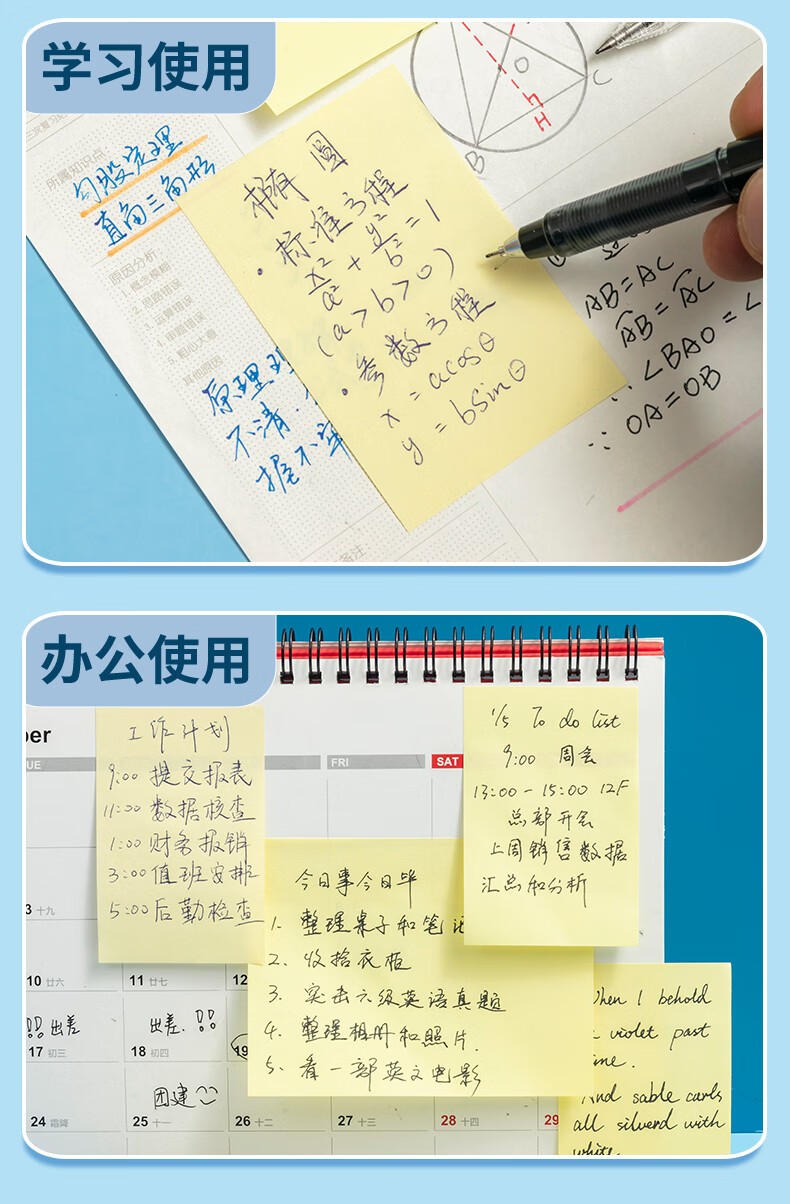 学习使用
所属知识点
勾股定理
直角三角形
原因分析
1. 概念模糊
2. 思路错误
3. 运算错误
4. 审题错误
5. 粗心大意
其他原因
原理理
不清.
握不牢
备注
椭圆
· 标准方程
x²/a² + y²/b² = 1
(a>b>0)
· 参数方程
x = acosθ
y = bsinθ
O
C
B
H
AB=AC
AB=AC
∴ ∠BAO=∠
∵ OA=OB
办公使用
ber
UE
FRI
SAT
工作计划
9:00 提交报表
11:00 数据核查
1:00 财务报销
3:00 值班安排
5:00 后勤检查
1/5 To do list
9:00 周会
13:00-15:00 12F
总部开会
上周销售数据
汇总和分析
今日事今日毕
1、整理桌子和笔记
2、收拾衣柜
3、突击六级英语真题
4、整理相册和照片.
5、看一部英文电影
hen I behold
violet past
ime.
And sable carls
all silverd with
white.
3 十九
10 廿六
11 廿七
12
!! 出差
出差. !!
17 初三
18 初四
19
团建
24 霜降
25 十一
26 十二
27 十三
28 十四
29